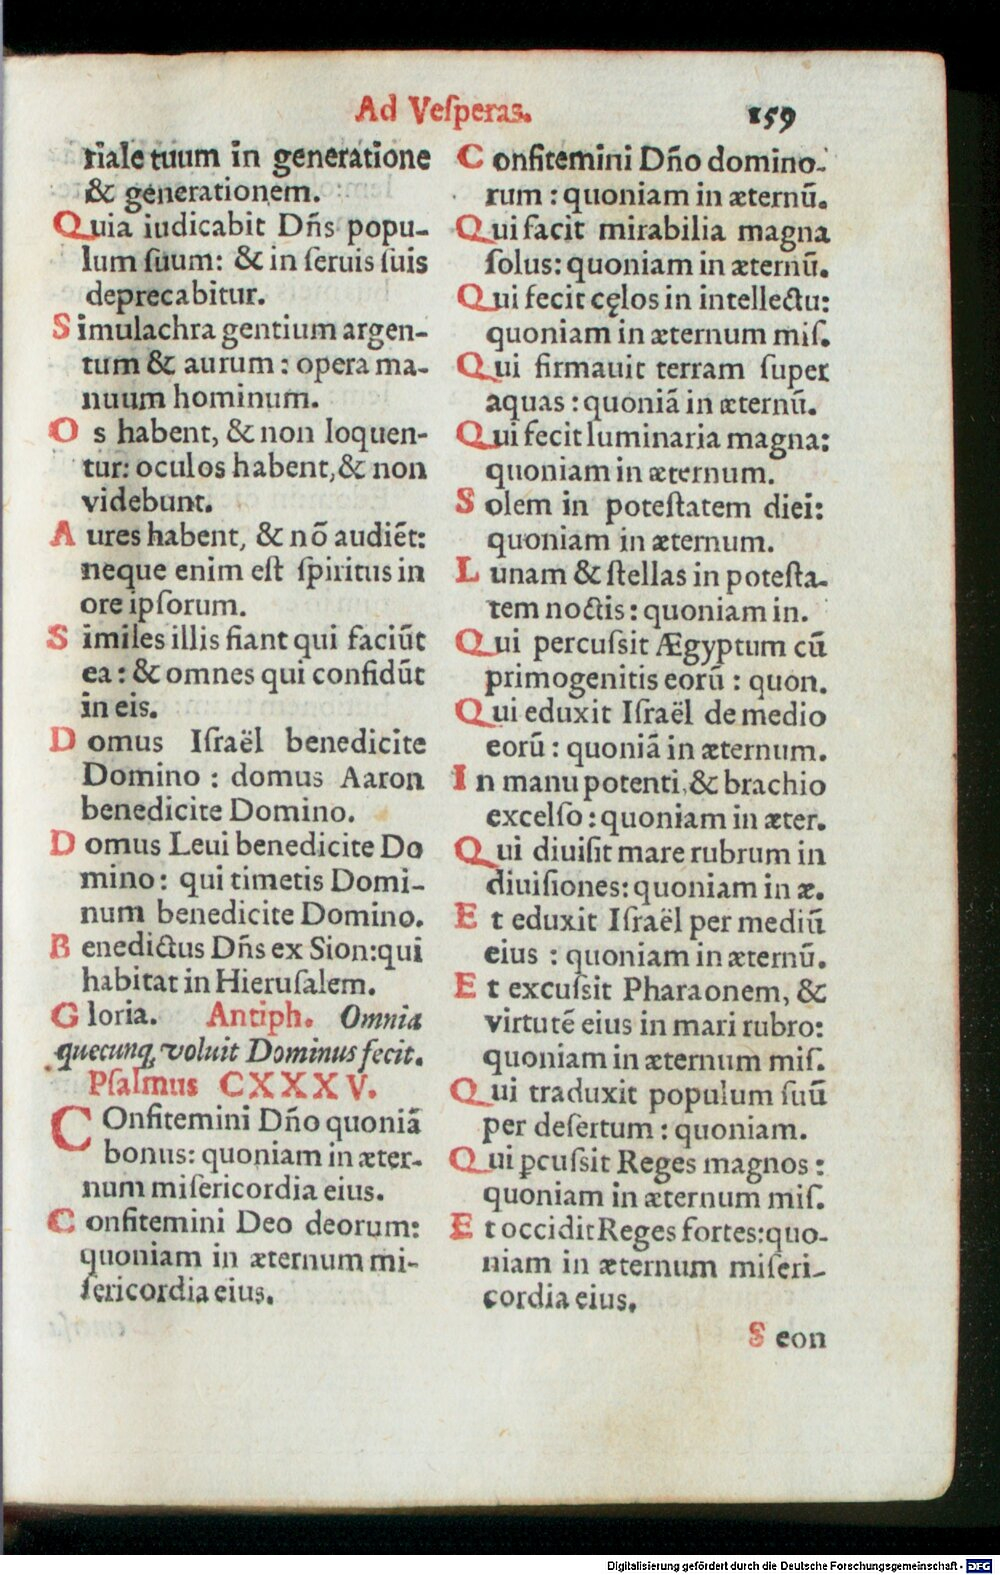 Ad Veſperas.
159
riale tuum in generatione
& generationem.
Quia iudicabit Dn̄s popu-
lum ſuum: & in ſeruis ſuis
deprecabitur.
Simulachra gentium argen-
tum & aurum : opera ma-
nuum hominum.
Os habent, & non loquen-
tur: oculos habent, & non
videbunt.
Aures habent, & nō audiēt:
neque enim eſt ſpiritus in
ore ipſorum.
Similes illis fiant qui faciūt
ea : & omnes qui confidūt
in eis.
Domus Iſraël benedicite
Domino : domus Aaron
benedicite Domino.
Domus Leui benedicite Do
mino: qui timetis Domi-
num benedicite Domino.
Benedictus Dn̄s ex Sion: qui
habitat in Hieruſalem.
Gloria. Antiph. Omnia
quecunq; voluit Dominus fecit.
Pſalmus CXXXV.
COnfitemini Dn̄o quoniā
bonus: quoniam in æter-
num miſericordia eius.
Confitemini Deo deorum:
quoniam in æternum mi-
ſericordia eius.
Confitemini Dn̄o domino-
rum : quoniam in æternū.
Qui facit mirabilia magna
ſolus: quoniam in æternū.
Qui fecit cęlos in intellectu:
quoniam in æternum miſ.
Qui firmauit terram ſuper
aquas : quoniā in æternū.
Qui fecit luminaria magna:
quoniam in æternum.
Solem in poteſtatem diei:
quoniam in æternum.
Lunam & ſtellas in poteſta-
tem noctis : quoniam in.
Qui percuſsit Ægyptum cū
primogenitis eorū : quon.
Qui eduxit Iſraël de medio
eorū : quoniā in æternum.
In manu potenti, & brachio
excelſo : quoniam in æter.
Qui diuiſit mare rubrum in
diuiſiones: quoniam in æ.
Et eduxit Iſraël per mediū
eius : quoniam in æternū.
Et excuſsit Pharaonem, &
virtutē eius in mari rubro:
quoniam in æternum miſ.
Qui traduxit populum ſuū
per deſertum : quoniam.
Qui ꝑcuſsit Reges magnos :
quoniam in æternum miſ.
Et occidit Reges fortes: quo-
niam in æternum miſeri-
cordia eius.
Seon
Digitalisierung gefördert durch die Deutsche Forschungsgemeinschaft - DFG